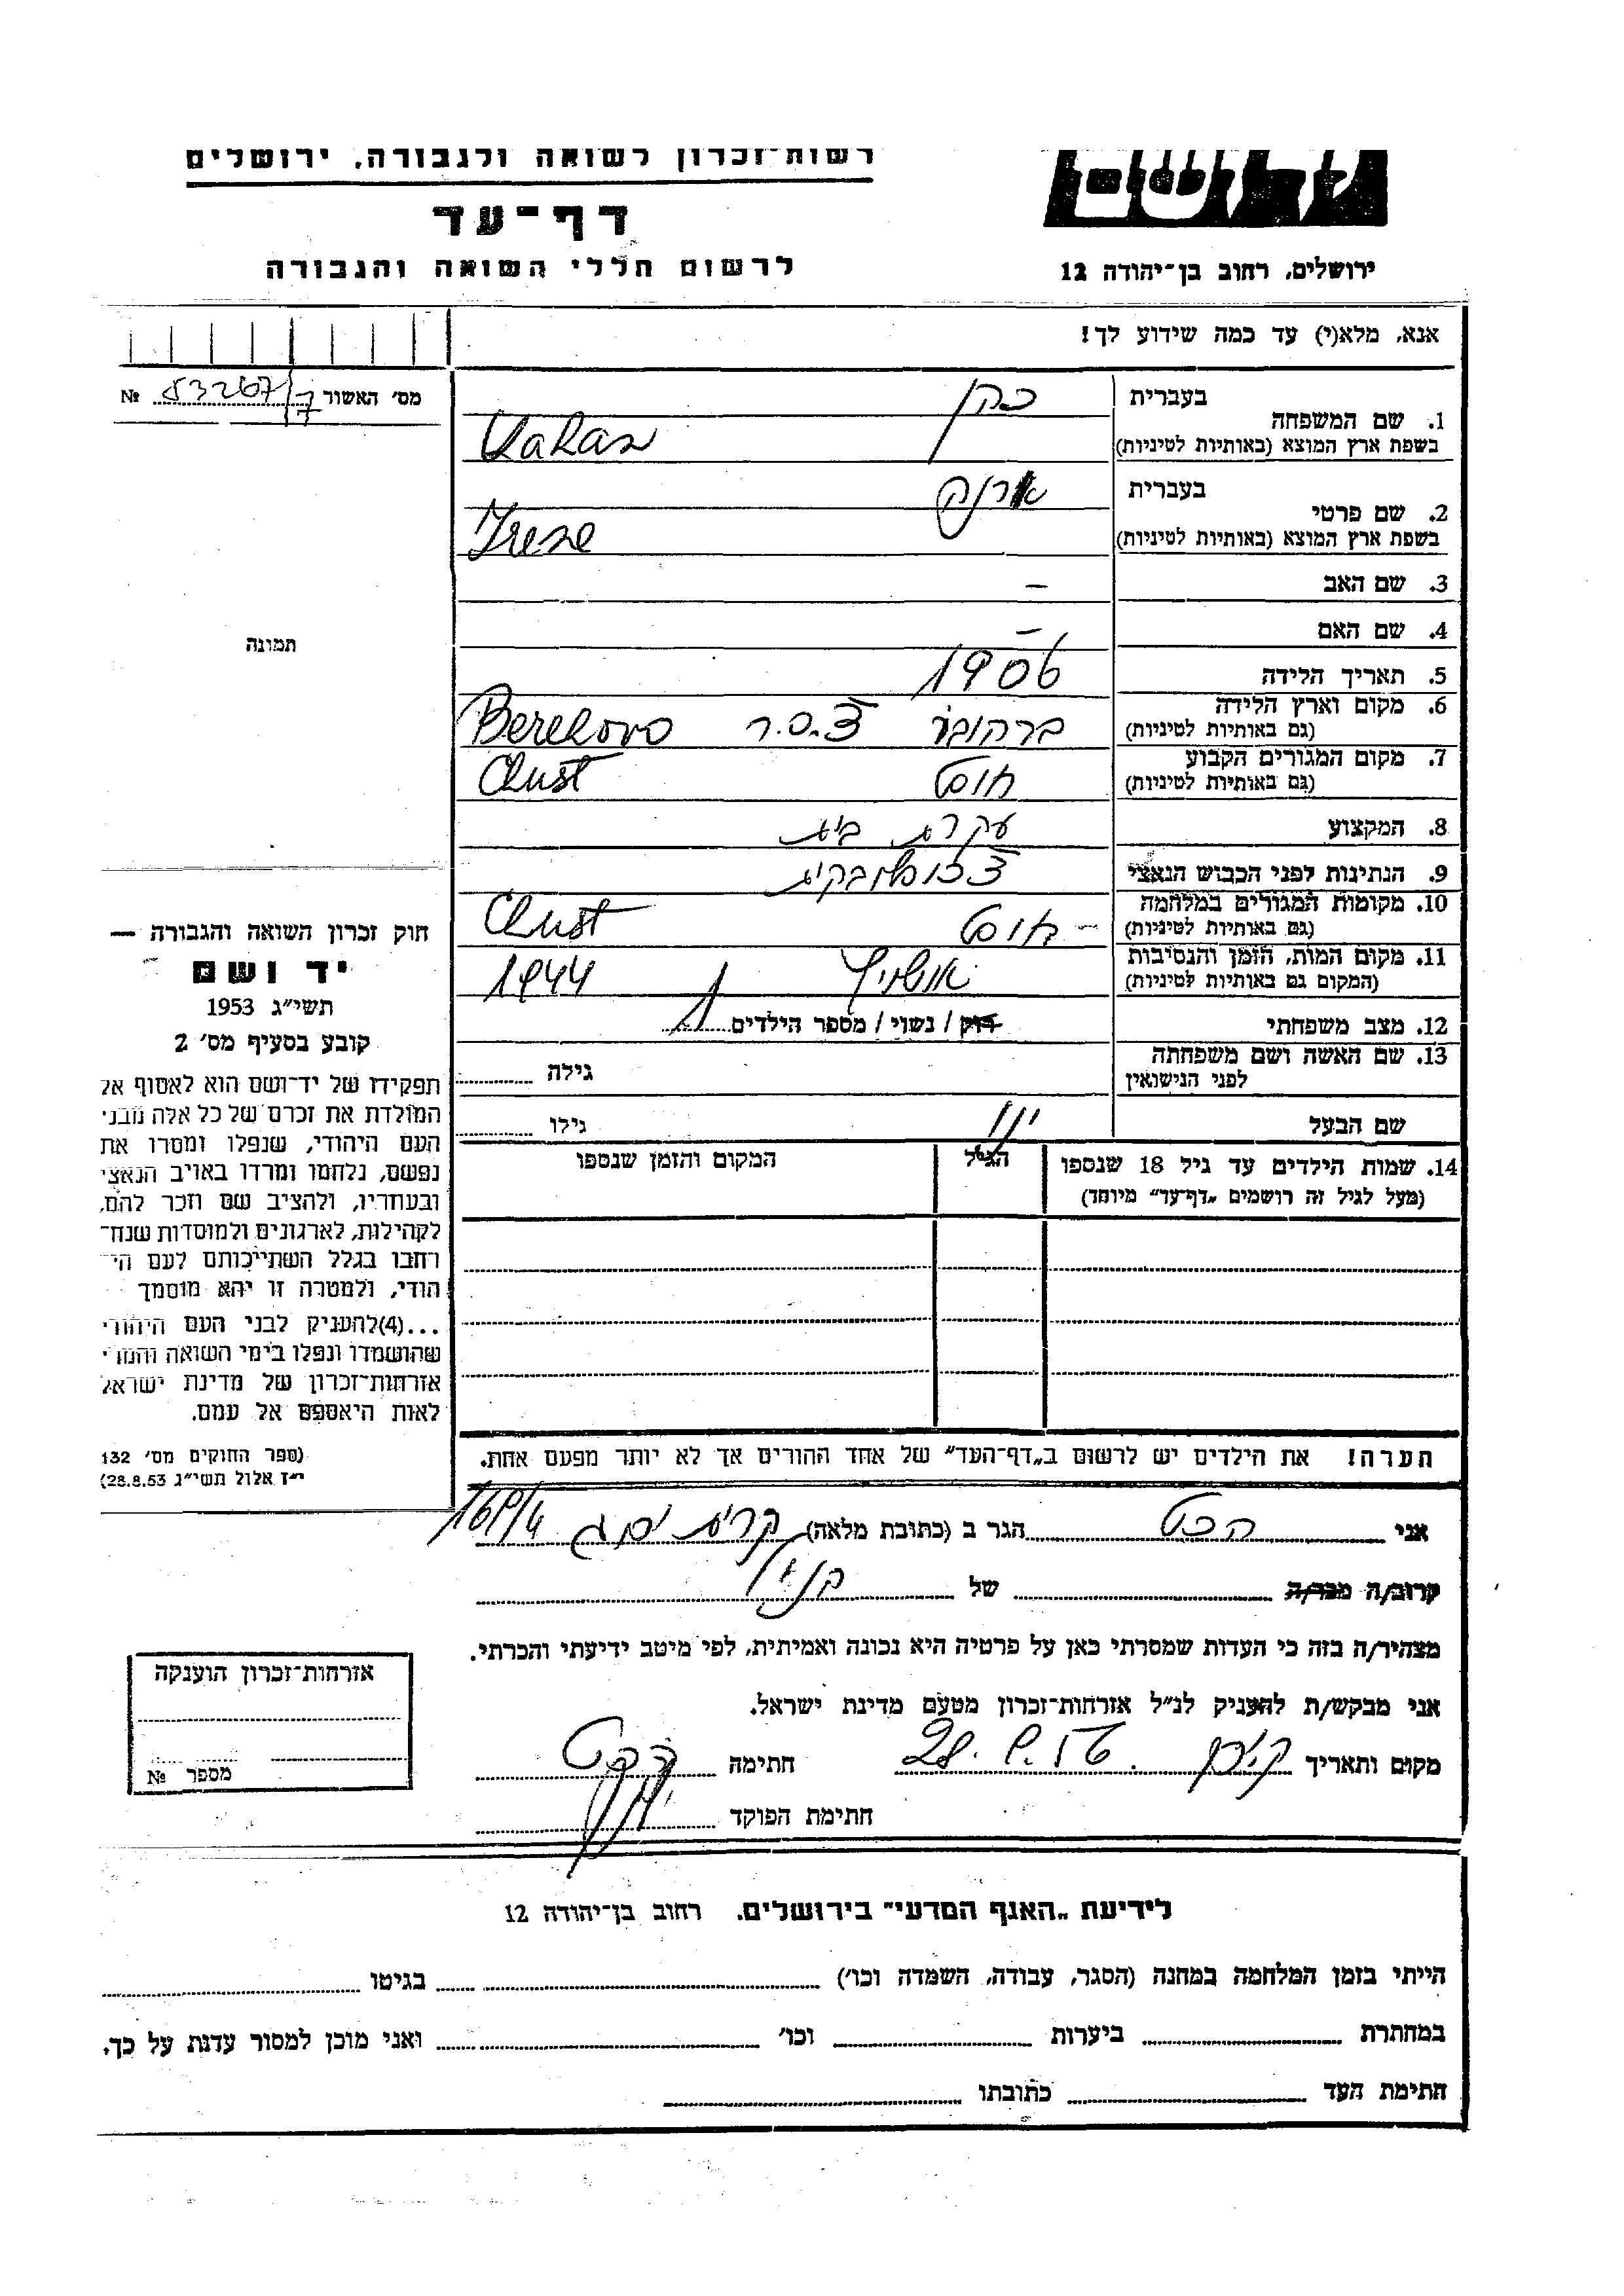 רשות־זכרון לשואה ולגבורה, ירושלים
דף־עד
לרשום חללי השואה והגבורה
ירושלים, רחוב בן־יהודה 12
אנא, מלא(י) עד כמה שידוע לך!
מס' האשור 53267/7 №
1. שם המשפחה
בעברית כהן
בשפת ארץ המוצא (באותיות לטיניות) Kahan
2. שם פרטי
בעברית
בשפת ארץ המוצא (באותיות לטיניות) Irene
3. שם האב –
4. שם האם –
5. תאריך הלידה 1906
6. מקום וארץ הלידה
(גם באותיות לטיניות) ברהובו צ.ס.ר Berehovo
7. מקום המגורים הקבוע
(גם באותיות לטיניות) חוסט Chust
8. המקצוע עקרת בית
9. הנתינות לפני הכבוש הנאצי
10. מקומות המגורים במלחמה
(גם באותיות לטיניות) חוסט Chust
11. מקום המות, הזמן והנסיבות
(המקום גם באותיות לטיניות) אושויץ 1944
12. מצב משפחתי רוק / נשוי / מספר הילדים 1
13. שם האשה ושם משפחתה
לפני הנישואין גילה
שם הבעל גילו
14. שמות הילדים עד גיל 18 שנספו
(מעל לגיל זה רושמים "דף־עד" מיוחד)
הגיל
המקום והזמן שנספו
תמונה
חוק זכרון השואה והגבורה —
יד ושם
תשי"ג 1953
קובע בסעיף מס' 2
תפקידו של יד־ושם הוא לאסוף אל
המולדת את זכרם של כל אלה מבני
העם היהודי, שנפלו ומסרו את
נפשם, נלחמו ומרדו באויב הנאצי
ובעוזריו, ולהציב שם וזכר להם,
לקהילות, לארגונים ולמוסדות שנח־
רבו בגלל השתייכותם לעם הי־
הודי, ולמטרה זו יהא מוסמך
...(4)להעניק לבני העם היהודי
שהושמדו ונפלו בימי השואה והמרי
אזרחות־זכרון של מדינת ישראל
לאות היאספם אל עמם.
(ספר החוקים מס' 132
י"ז אלול תשי"ג 28.8.53)
הערה! את הילדים יש לרשום ב"דף־העד" של אחד ההורים אך לא יותר מפעם אחת.
אני הגר ב (כתובת מלאה) קרית
קרוב/ה מכר/ה של
מצהיר/ה בזה כי העדות שמסרתי כאן על פרטיה היא נכונה ואמיתית, לפי מיטב ידיעתי והכרתי.
אני מבקש/ת להעניק לנ"ל אזרחות־זכרון מטעם מדינת ישראל.
מקום ותאריך חתימה
חתימת הפוקד
אזרחות־זכרון הוענקה
מספר №
לידיעת "האגף המדעי" בירושלים, רחוב בן־יהודה 12
הייתי בזמן המלחמה במחנה (הסגר, עבודה, השמדה וכו') בגיטו
במחתרת ביערות וכו' ואני מוכן למסור עדות על כך.
חתימת העד כתובתו